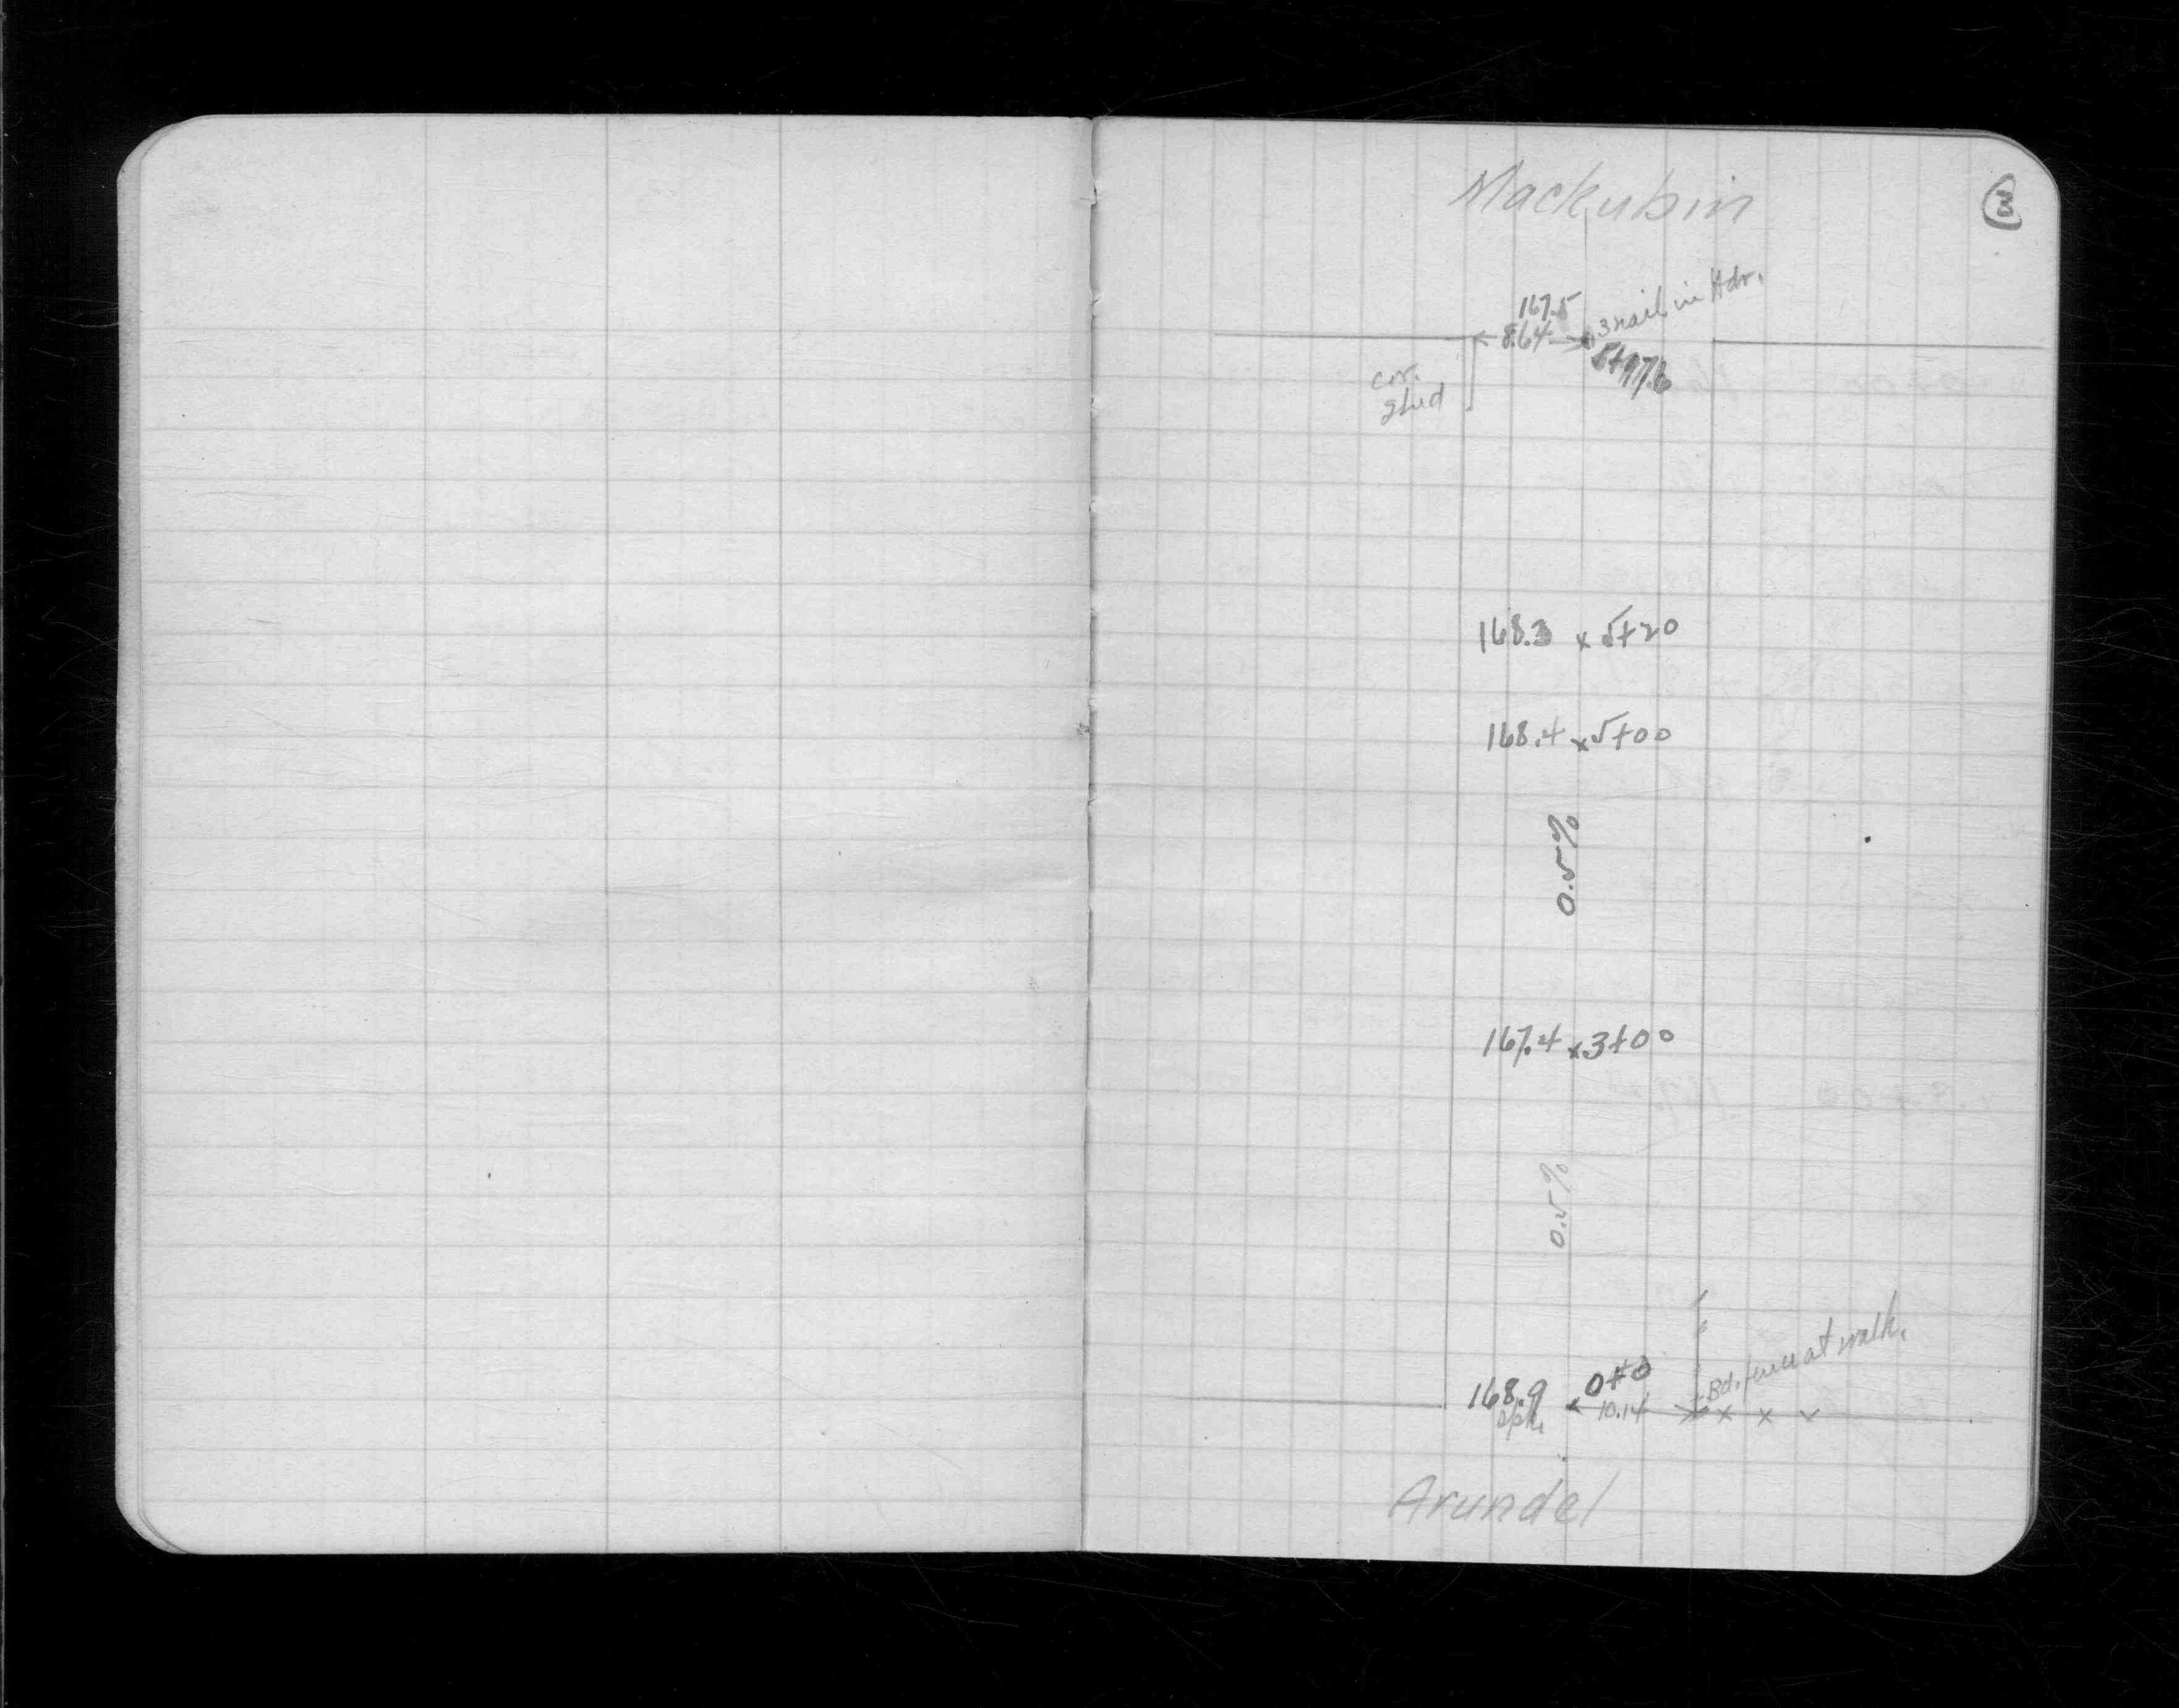 Mackubin
3
167.5
8.64 3 nail in Hdr.
5+97.6
cor.
glud
168.3 x 5+20
168.4 x 5+00
0.5%
167.4 x 3+00
0.5%
168.9 0+0 Bd. fence at walk.
10.14 x x
Arundel